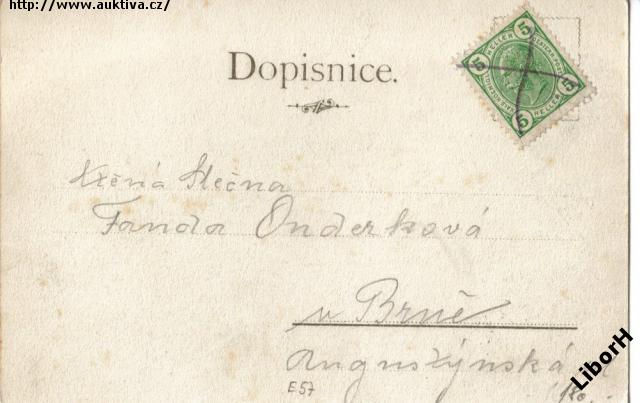 http://www.auktiva.cz/
Dopisnice.
5 HELLER 5 HELLER 5 5
Ctěná Slečna
Fanda Onderková
v Brně
Augustýnská
E57
LiborH